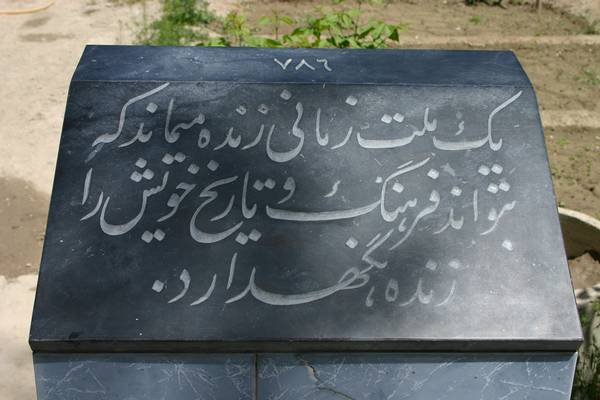 ٧٨٦
یک ملت زمانی زنده میماند که
بتواند فرهنگ و تاریخ خویش را
زنده نگهدارد.